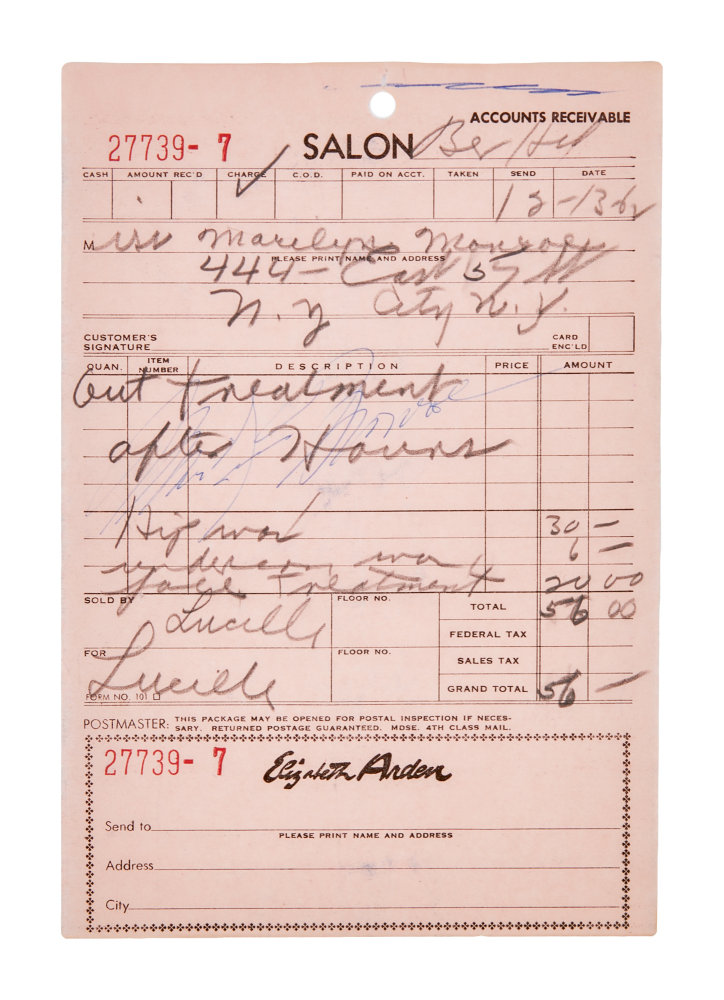 ACCOUNTS RECEIVABLE
27739-7 SALON
CASH AMOUNT REC'D CHARGE C.O.D. PAID ON ACCT. TAKEN SEND DATE
12-13-62
Miss Marilyn Monroe
PLEASE PRINT NAME AND ADDRESS
444- East 57 St
N.Y City N.Y.
CUSTOMER'S SIGNATURE CARD ENC'LD
QUAN. ITEM NUMBER DESCRIPTION PRICE AMOUNT
Out treatment
after Hours
Hip wax 30 —
underarm wax 6 —
face treatment 20 00
SOLD BY Lucille FLOOR NO. TOTAL 56 00
FEDERAL TAX
FOR Lucille FLOOR NO. SALES TAX
FORM NO. 101 GRAND TOTAL 56 —
POSTMASTER: THIS PACKAGE MAY BE OPENED FOR POSTAL INSPECTION IF NECES-
SARY. RETURNED POSTAGE GUARANTEED. MDSE. 4TH CLASS MAIL.
27739-7 Elizabeth Arden
Send to
PLEASE PRINT NAME AND ADDRESS
Address
City